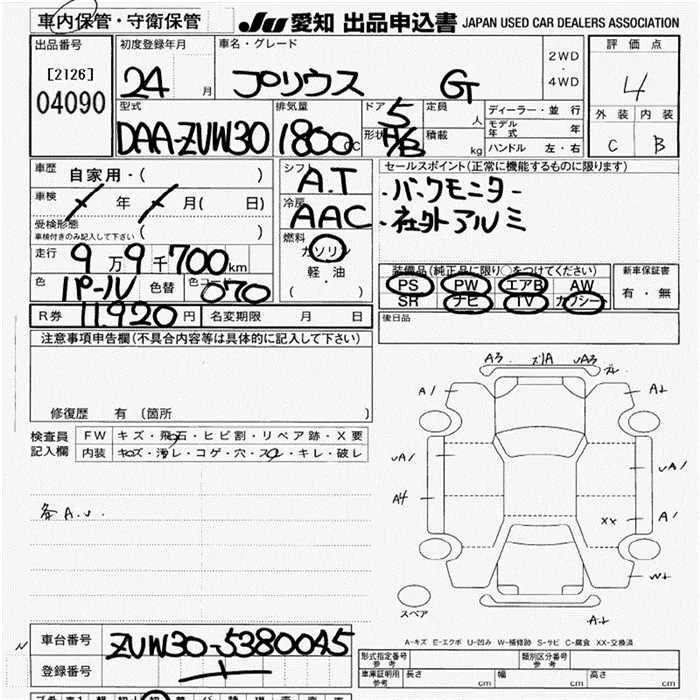 車内保管・守衛保管
JU 愛知 出品申込書 JAPAN USED CAR DEALERS ASSOCIATION
出品番号 初度登録年月 車名・グレード 2WD・4WD 評価点
[2126] 24 月 プリウス G 4
04090
型式 排気量 ドア 5 定員 人 ディーラー・並行 外装 内装
DAA-ZVW30 1800cc 形状 H/B 積載 kg モデル年式 年 C B
ハンドル 左・右
車歴 自家用・( ) シフト A.T セールスポイント(正常に機能するものに限ります)
車検 年 月( 日) 冷房 AAC ・バックモニター
受検形態 ( ) ・社外アルミ
車検付きのみ記入して下さい
燃料 ガソリン
走行 9万9千700km 軽・油
装備品(純正品に限り○をつけてください) 新車保証書
色 パール 色替 色コード 070 ( ・ ) PS PW エアB AW 有・無
SR ナビ TV カワシート
R券 11,920円 名変期限 月 日 後日品
注意事項申告欄(不具合内容等は具体的に記入して下さい)
修復歴 有 〔箇所 〕
検査員記入欄 FW キズ・飛石・ヒビ割・リペア跡・X要
内装 キズ・汚レ・コゲ・穴・スレ・キレ・破レ
A3 ズ1A
A1
A1
A4 A1
XX
スペア
A-キズ E-エクボ U-凹み W-補修跡 S-サビ C-腐食 XX-交換済
車台番号 ZVW30-5380045
登録番号
形式指定番号 参考 類別区分番号 参考
車庫証明用 参考 長さ cm 幅 cm 高さ cm